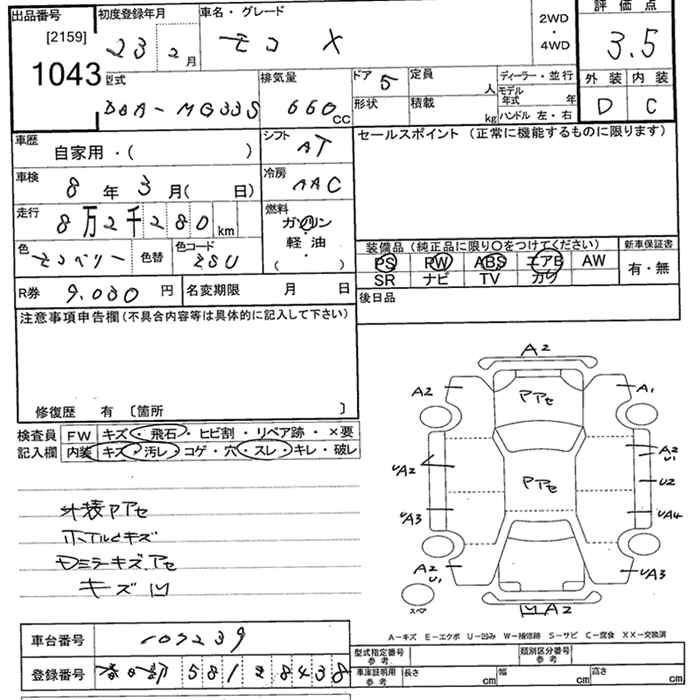 出品番号 初度登録年月 車名・グレード 2WD・4WD 評価点
[2159] 23 2月 モコ X 3.5
1043 外装 内装
型式 排気量 ドア 5 定員 人 ディーラー・並行 D C
DBA-MG33S 660cc 形状 積載 kg モデル年式 年
ハンドル 左・右
車歴 シフト セールスポイント(正常に機能するものに限ります)
自家用・( ) AT
車検 8年3月( 日) 冷房 AAC
走行 8万2千280km 燃料 ガソリン
軽油
( )
色 モコベリー 色替 色コード ZSU 装備品(純正品に限り〇をつけてください) 新車保証書
PS PW ABS エアB AW 有・無
SR ナビ TV カワ
R券 9.030円 名変期限 月 日 後日品
注意事項申告欄(不具合内容等は具体的に記入して下さい)
修復歴 有 〔箇所 〕
検査員 FW キズ・飛石・ヒビ割・リペア跡・×要
記入欄 内装 キズ・汚レ・コゲ・穴・スレ・キレ・破レ
A2
A2 Pアセ A1
UA2 Pアセ A2 U1
U2
UA3 UA4
A2 U1 UA3
スペア 凹A2
外装Pアセ
ホイルCキズ
Dミラーキズ.アセ
キズ 凹
A-キズ E-エクボ U-凹み W-補修跡 S-サビ C-腐食 XX-交換済
車台番号 105239 型式指定番号 参考 類別区分番号 参考
登録番号 春日部 581 2 8438 車庫証明用 参考 長さ cm 幅 cm 高さ cm